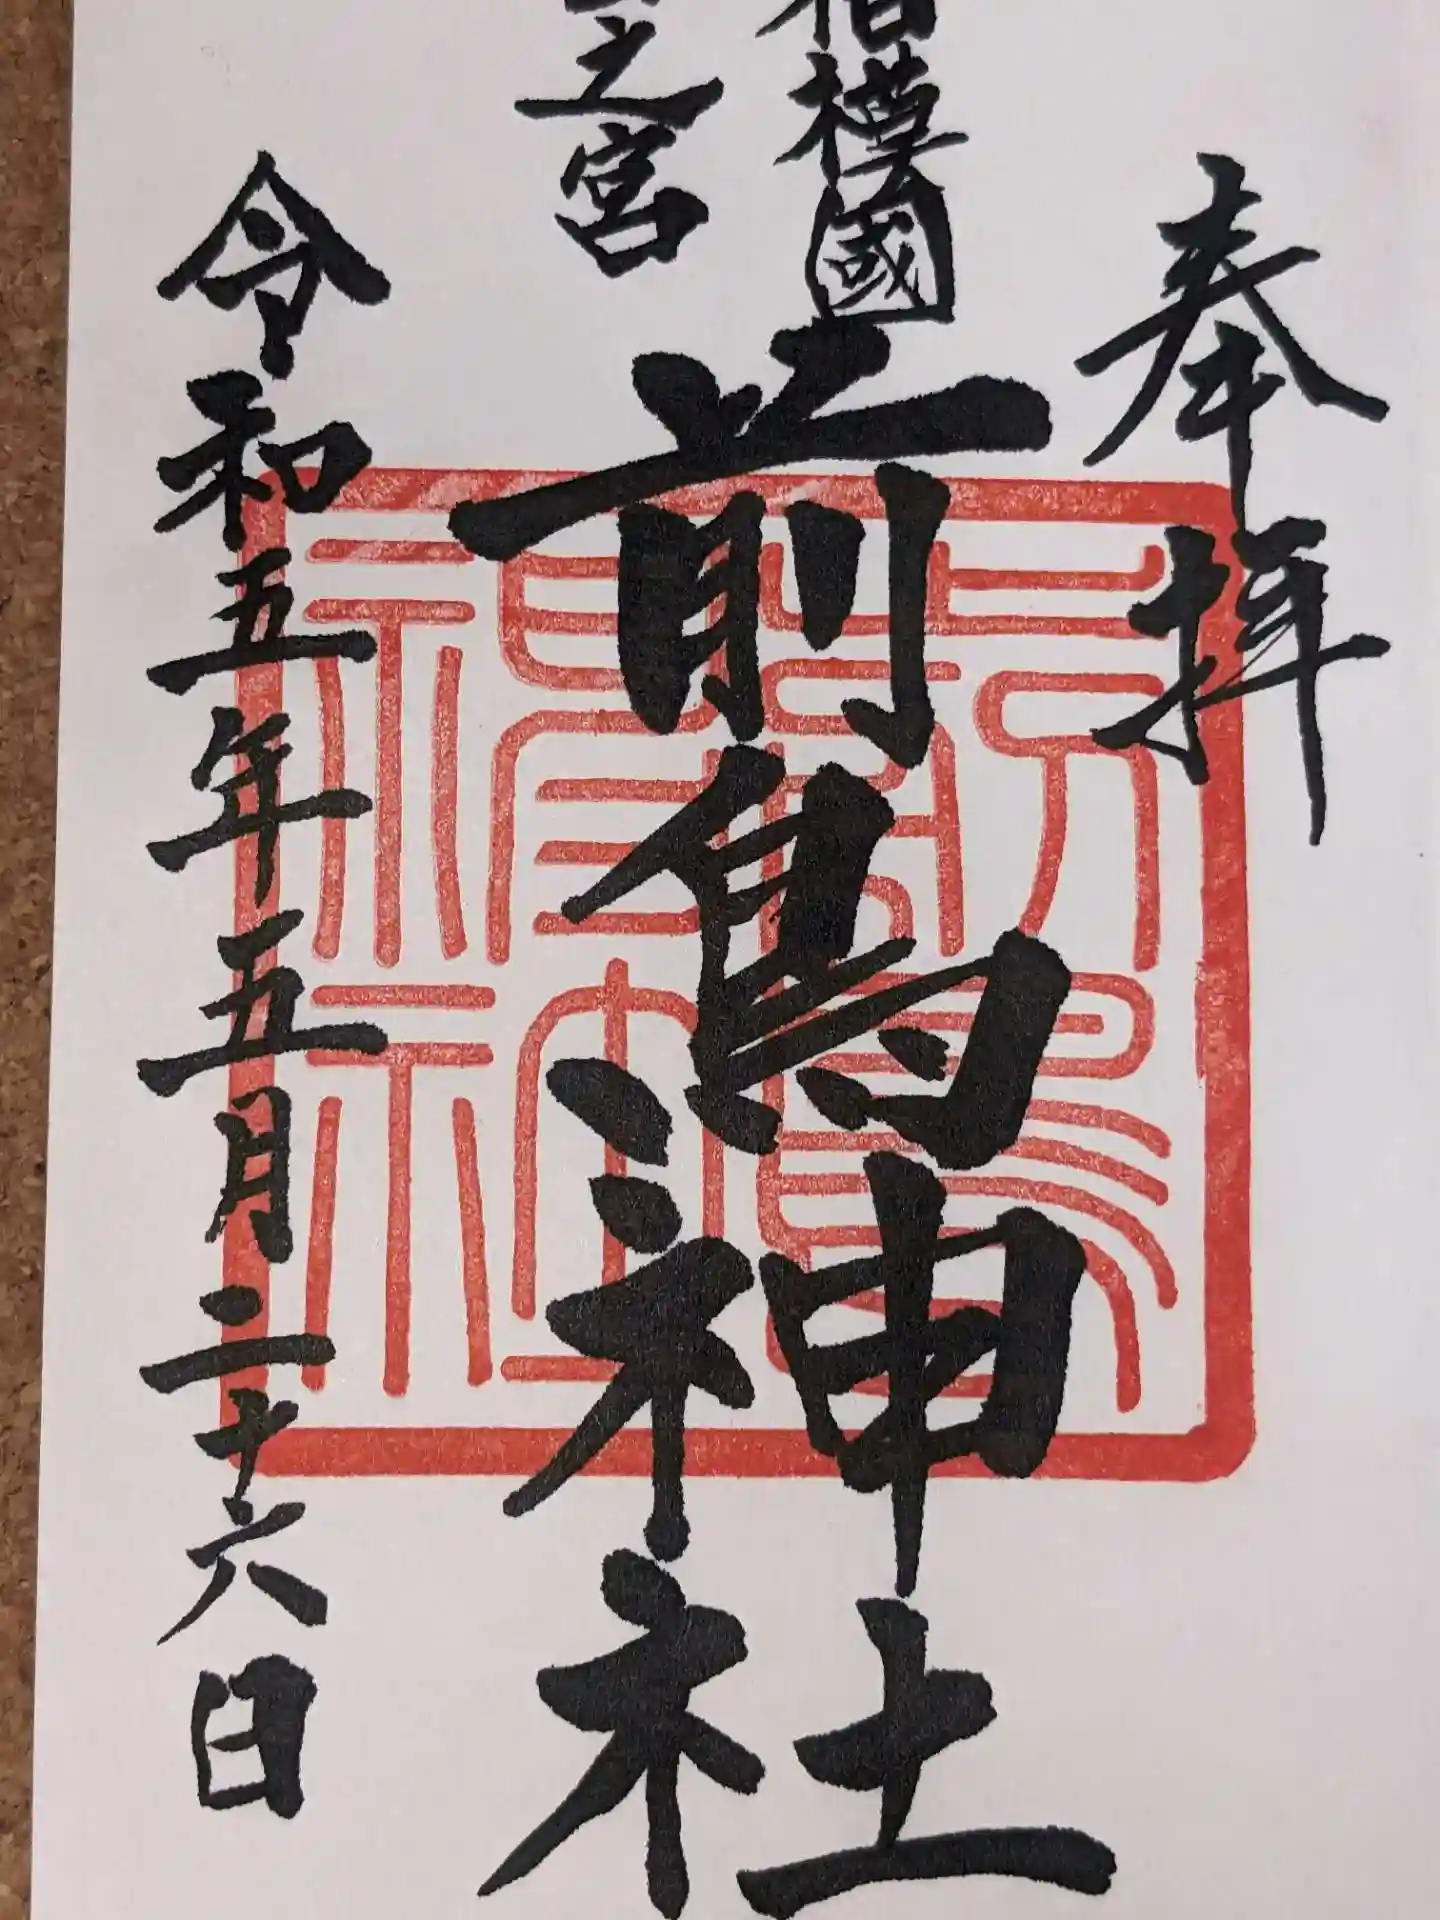 奉拝
相模國
之宮
前鳥神社
令和五年五月二十六日